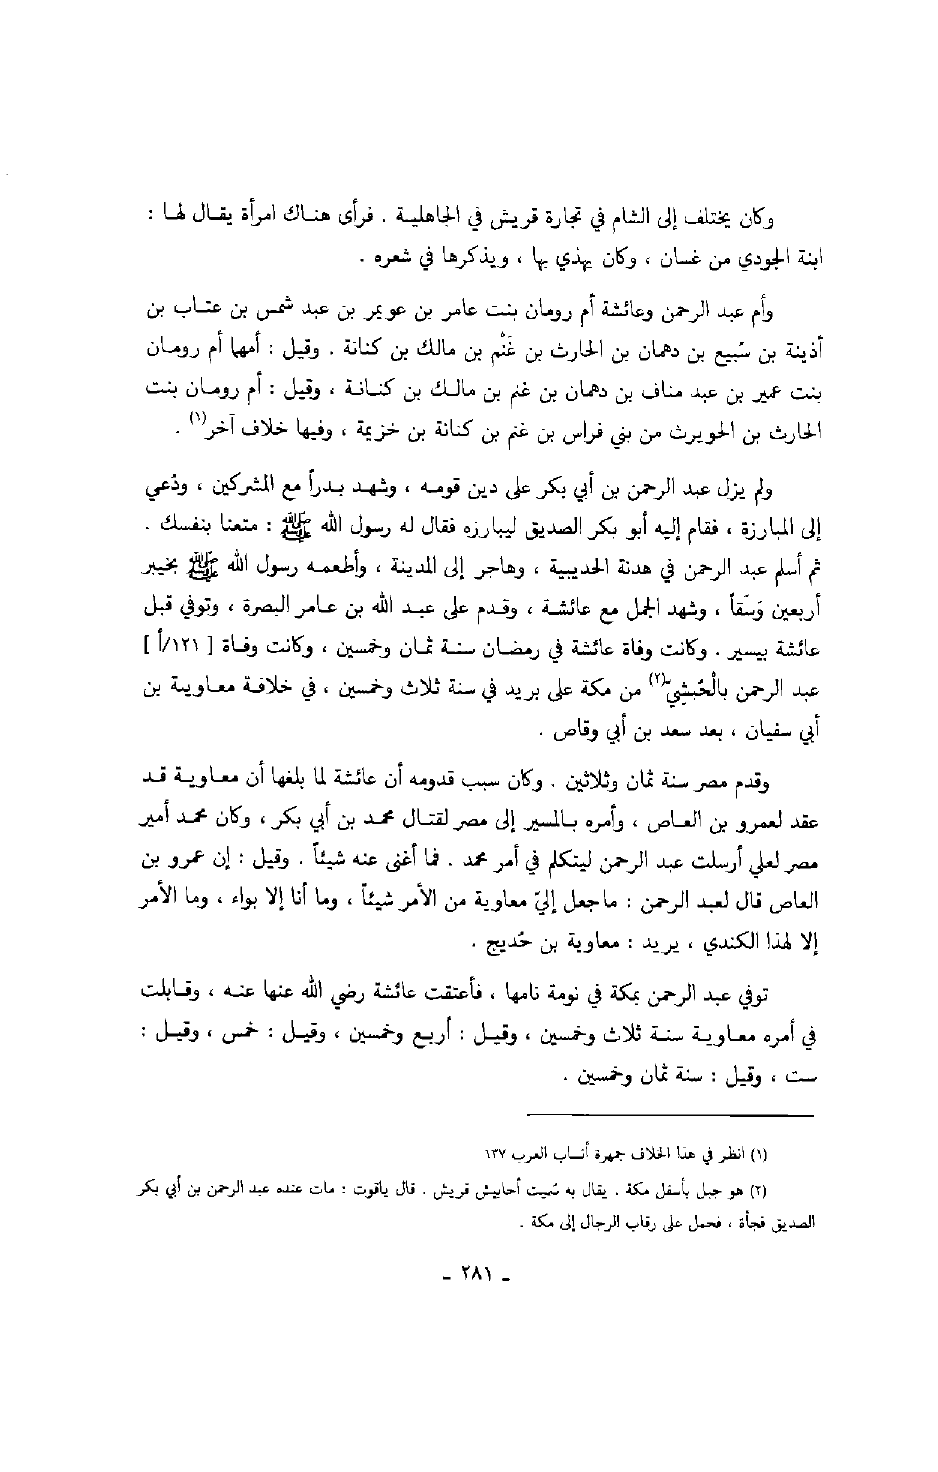 وكان يختلف إلى الشام في تجارة قريش في الجاهلية . فرأى هناك امرأة يقال لها :
ابنة الجودي من غسان ، وكان يهذي بها ، ويذكرها في شعره .
وأم عبد الرحمن وعائشة أم رومان بنت عامر بن عويمر بن عبد شمس بن عتاب بن
أذينة بن سُبيع بن دهمان بن الحارث بن غَنْم بن مالك بن كنانة . وقيل : أمها أم رومان
بنت عمير بن عبد مناف بن دهمان بن غنم بن مالك بن كنانة ، وقيل : أم رومان بنت
الحارث بن الحويرث من بني فراس بن غنم بن كنانة بن خزيمة ، وفيها خلاف آخر(١) .
ولم يزل عبد الرحمن بن أبي بكر على دين قومه ، وشهد بدراً مع المشركين ، ودُعي
إلى المبارزة ، فقام إليه أبو بكر الصديق ليبارزه فقال له رسول الله ﷺ : متعنا بنفسك .
ثم أسلم عبد الرحمن في هدنة الحديبية ، وهاجر إلى المدينة ، وأطعمه رسول الله ﷺ بخيبر
أربعين وَسْقاً ، وشهد الجمل مع عائشة ، وقدم على عبد الله بن عامر البصرة ، وتوفي قبل
عائشة بيسير . وكانت وفاة عائشة في رمضان سنة ثمان وخمسين ، وكانت وفاة [ ١٢١/أ ]
عبد الرحمن بالْحُبشِيّ(٢) من مكة على بريد في سنة ثلاث وخمسين ، في خلافة معاوية بن
أبي سفيان ، بعد سعد بن أبي وقاص .
وقدم مصر سنة ثمان وثلاثين . وكان سبب قدومه أن عائشة لما بلغها أن معاوية قد
عقد لعمرو بن العاص ، وأمره بالمسير إلى مصر لقتال محمد بن أبي بكر ، وكان محمد أمير
مصر لعلي أرسلت عبد الرحمن ليتكلم في أمر محمد . فما أغنى عنه شيئاً . وقيل : إن عمرو بن
العاص قال لعبد الرحمن : ماجعل إليّ معاوية من الأمر شيئاً ، وما أنا إلا بواء ، وما الأمر
إلا لهذا الكندي ، يريد : معاوية بن حُديج .
توفي عبد الرحمن بمكة في نومة نامها ، فأعتقت عائشة رضي الله عنها عنه ، وقابلت
في أمره معاوية سنة ثلاث وخمسين ، وقيل : أربع وخمسين ، وقيل : خمس ، وقيل :
ست ، وقيل : سنة ثمان وخمسين .
(١) انظر في هذا الخلاف جمهرة أنساب العرب ١٣٧
(٢) هو جبل بأسفل مكة . يقال به سُميت أحابيش قريش . قال ياقوت : مات عنده عبد الرحمن بن أبي بكر
الصديق فجأة ، فحمل على رقاب الرجال إلى مكة .
ـ ٢٨١ ـ